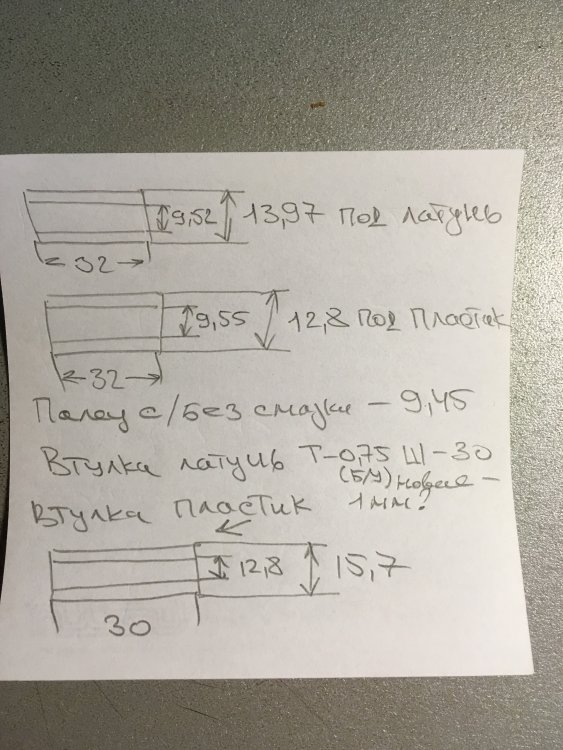 9,52 13,97 под латунь
32
9,55 12,8 под пластик
32
Палец с/без смазки - 9,45
Втулка латунь Т-0,75 Ш-30
(Б/У) новые -
Втулка пластик 1 мм?
12,8 15,7
30